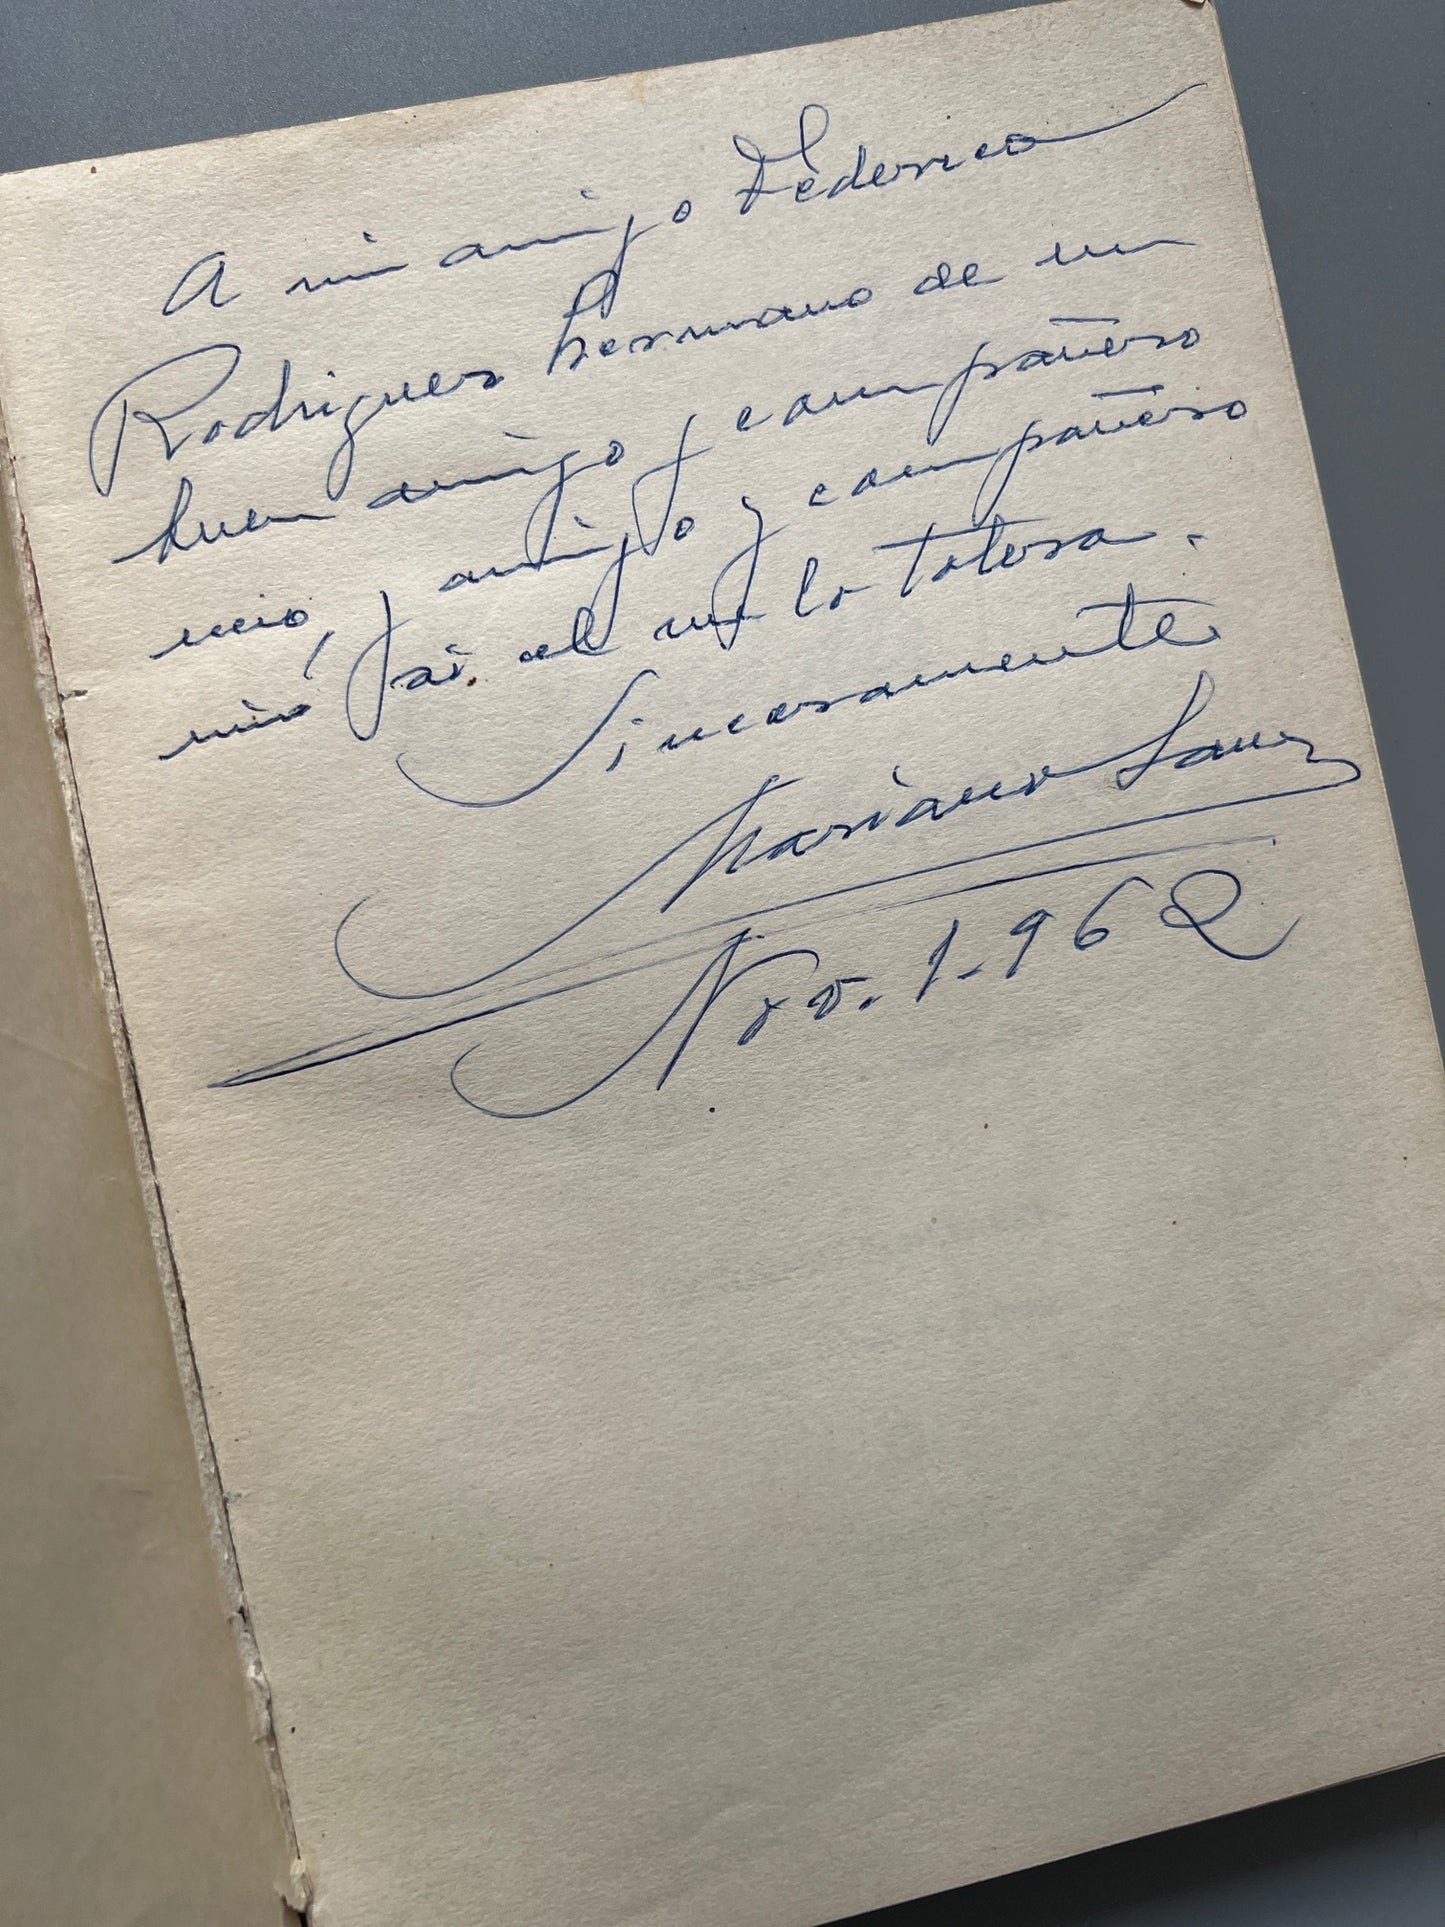 A mi amigo Federico
Rodriguez hermano de un
buen amigo y compañero
mio, y amigo y compañero
mio y asi el
Sinceramente
Mariano Sanz
Nov. 1-962